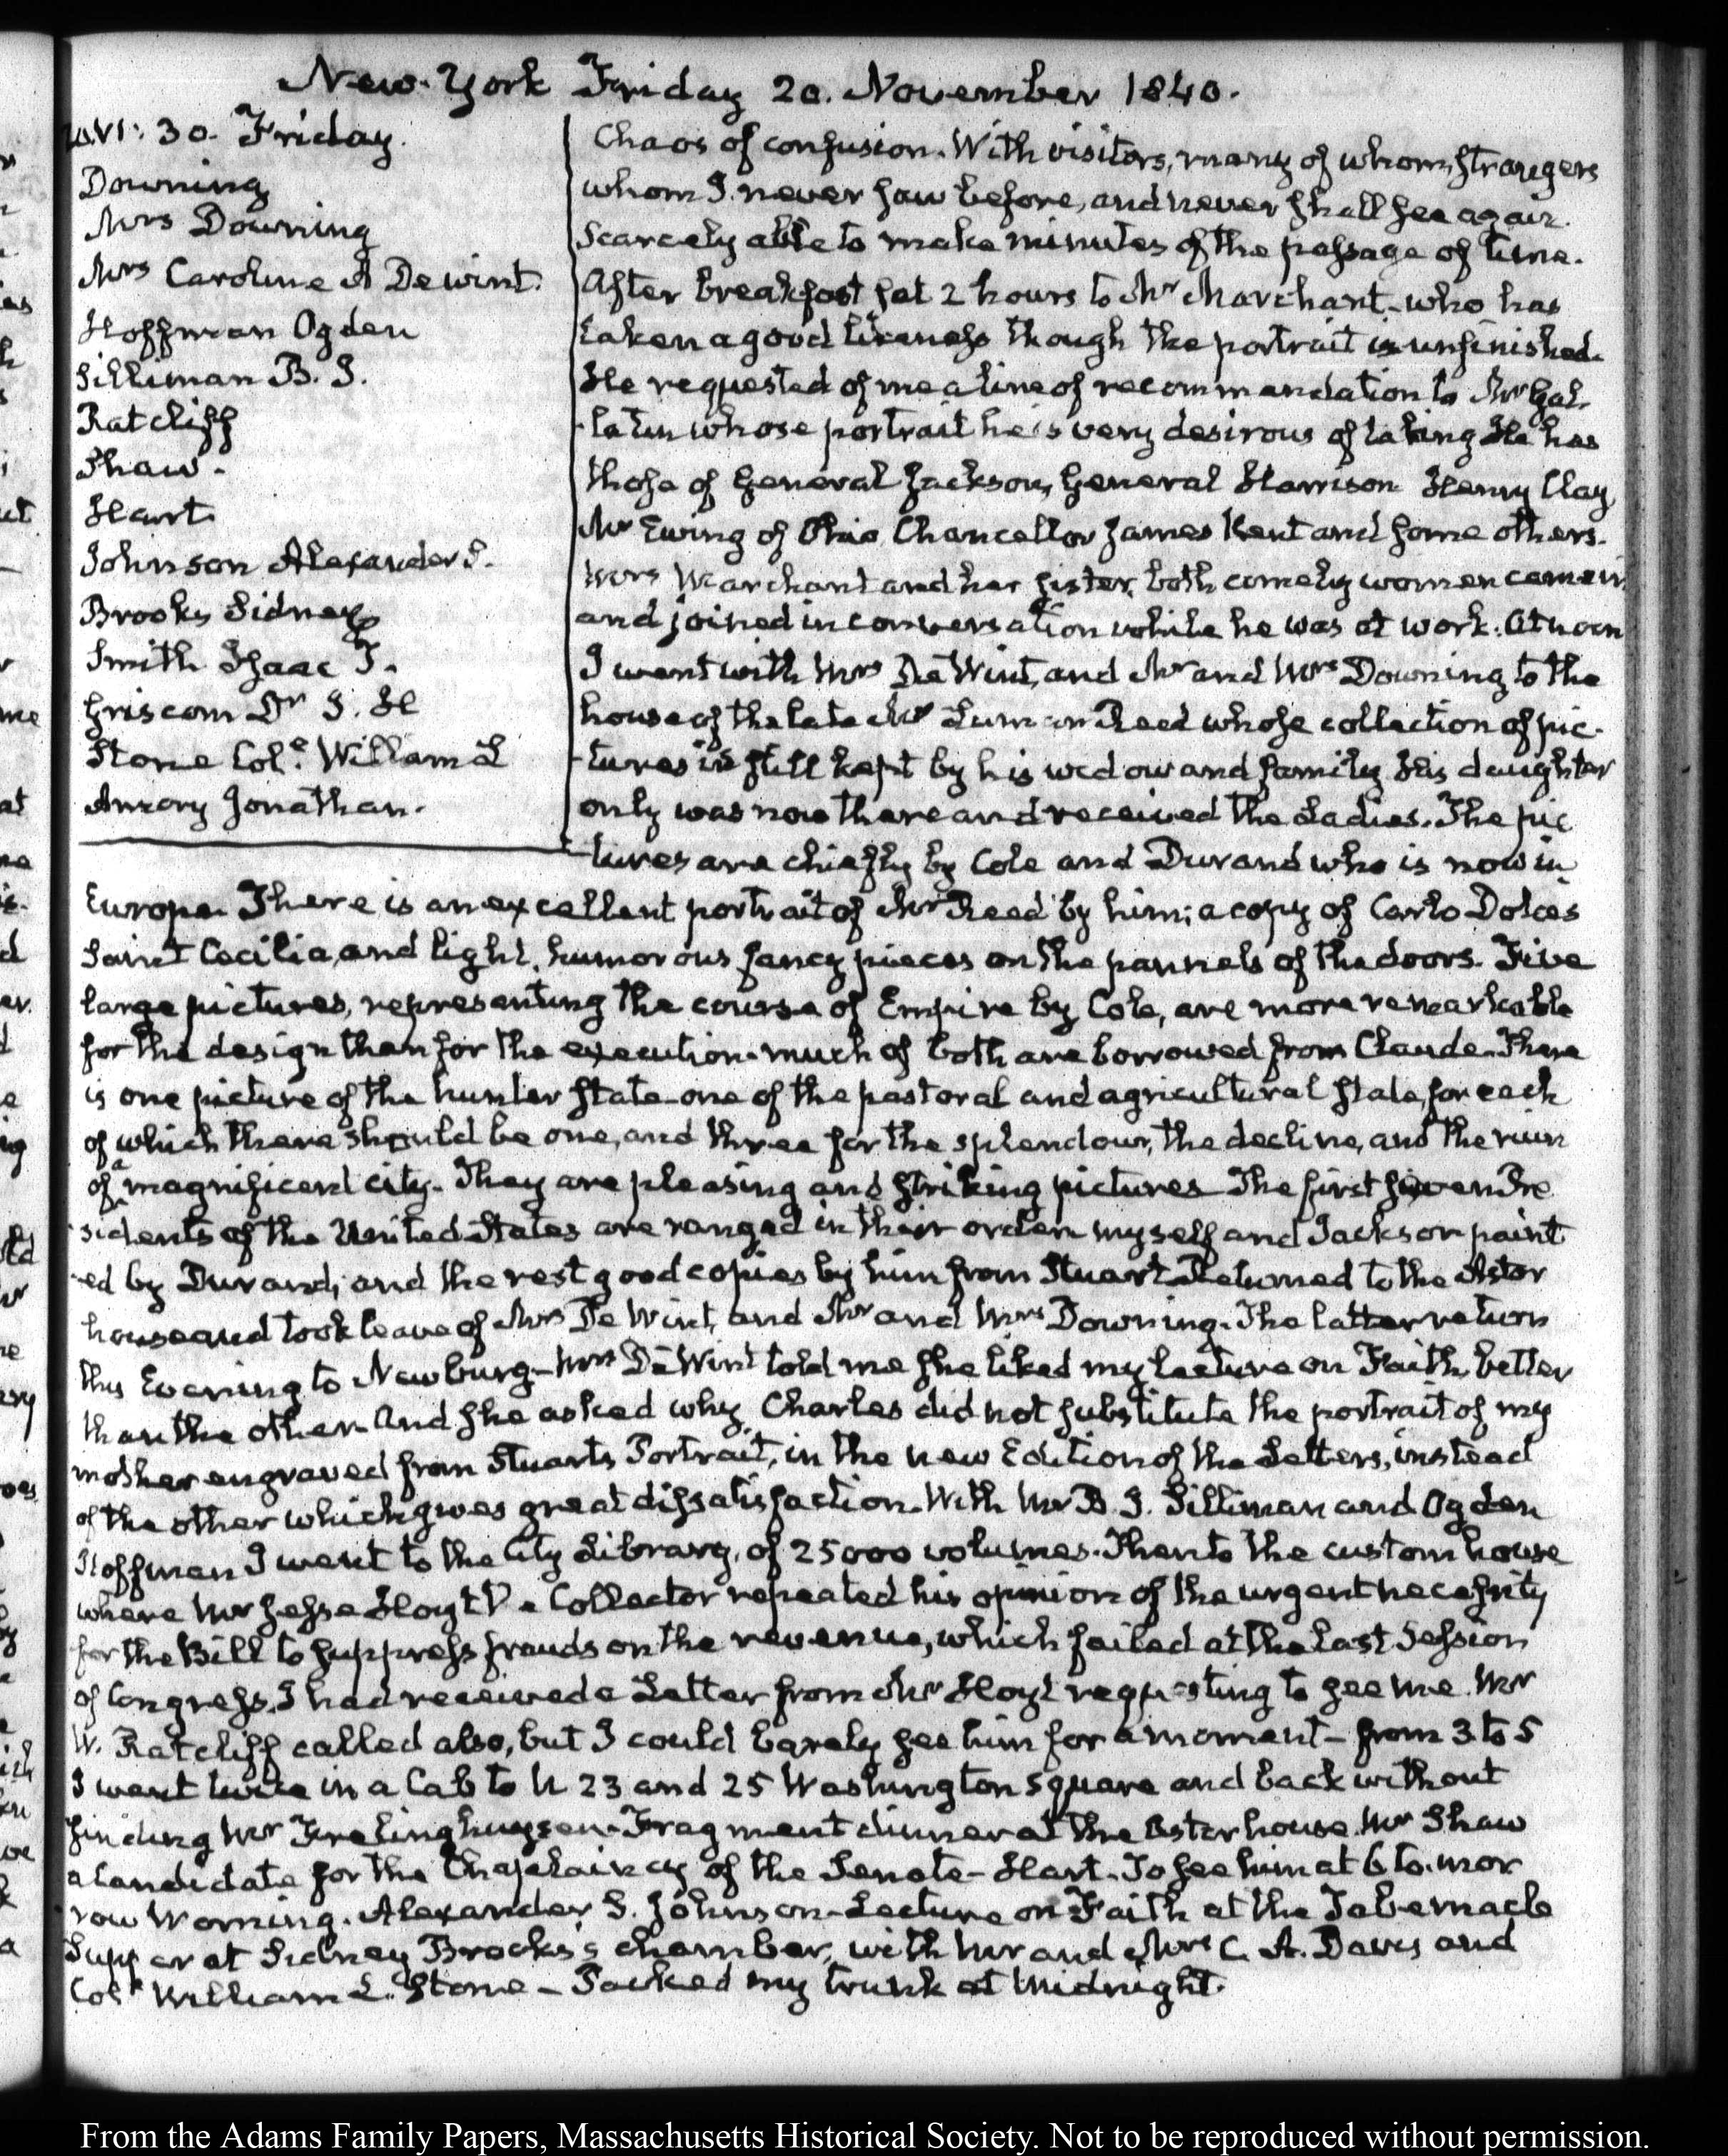 New-York Friday 20. November 1840.
20. VI: 30. Friday.
Downing
Mrs Downing
Mrs Caroline A De Wint.
Hoffman Ogden
Silliman B. D.
Ratcliff
Shaw.
Hart
Johnson Alexander S.
Brooks Sidney
Smith Isaac T.
Griscom Dr J. H
Stone Col. William L
Amory Jonathan.
Chaos of confusion. With visitors, many of whom, strangers
whom I never saw before, and never shall see again.
Scarcely able to make minutes of the passage of time.
After breakfast sat 2 hours to Mr Marchant, who has
taken a good likeness though the portrait is unfinished.
He requested of me a line of recommendation to Mr Gal-
-latin whose portrait he is very desirous of taking He has
those of General Jackson, General Harrison Henry Clay,
Mr Ewing of Ohio Chancellor James Kent and some others.
Mrs Marchant and her sister, both comely women came in
and joined in conversation while he was at work. At noon
I went with Mrs De Wint, and Mr and Mrs Downing to the
house of the late Mr Luman Reed whose collection of pic-
-tures is still kept by his widow and family His daughter
only was now there and received the Ladies. The pic
-tures are chiefly by Cole and Durand who is now in
Europe. There is an excellent portrait of Mr Reed by him; a copy of Carlo Dolces
Saint Cecilia, and light, humorous fancy pieces on the pannels of the doors. Five
large pictures, representing the course of Empire by Cole, are more remarkable
for the design than for the execution. much of both are borrowed from Claude. There
is one picture of the hunter state one of the pastoral and agricultural state, for each
of which there should be one, and three for the splendour, the decline, and the ruin
of a magnificent city. They are pleasing and striking pictures The first seven Pre
-sidents of the United States are ranged in their order myself and Jackson paint
-ed by Durand; and the rest good copies by him from Stuart. Returned to the Astor
house and took leave of Mrs De Wint, and Mr and Mrs Downing. The latter return
this Evening to Newburg—Mrs De Wint told me she liked my lecture on Faith, better
than the other. And she asked why Charles did not substitute the portrait of my
mother engraved from Stuarts Portrait, in the new Edition of the Letters, instead
of the other which gives great dissatisfaction. With Mr B. D. Silliman and Ogden
Hoffman I went to the City Library, of 25000 volumes. Then to the custom house
where Mr Jesse Hoyt Collector repeated his opinion of the urgent necessity
for the Bill to suppress frauds on the revenue, which failed at the last Session
of Congress. I had received a Letter from Mr Hoyt requesting to see me. Mr
W. Ratcliff called also, but I could barely see him for a moment—from 3 to 5
I went twice in a Cab to N 23 and 25 Washington Square and back without
finding Mr Frelinghuysen. Fragment dinner at the Astor house. Mr Shaw
a Candidate for the Chaplaincy of the Senate—Hart. To see him at 6 to-mor
row Morning. Alexander S. Johnson—Lecture on Faith at the Tabernacle
Supper at Sidney Brooks's chamber, with Mr and Mrs C. A. Davis and
Col. William L. Stone—Packed my trunk at Midnight.
From the Adams Family Papers, Massachusetts Historical Society. Not to be reproduced without permission.